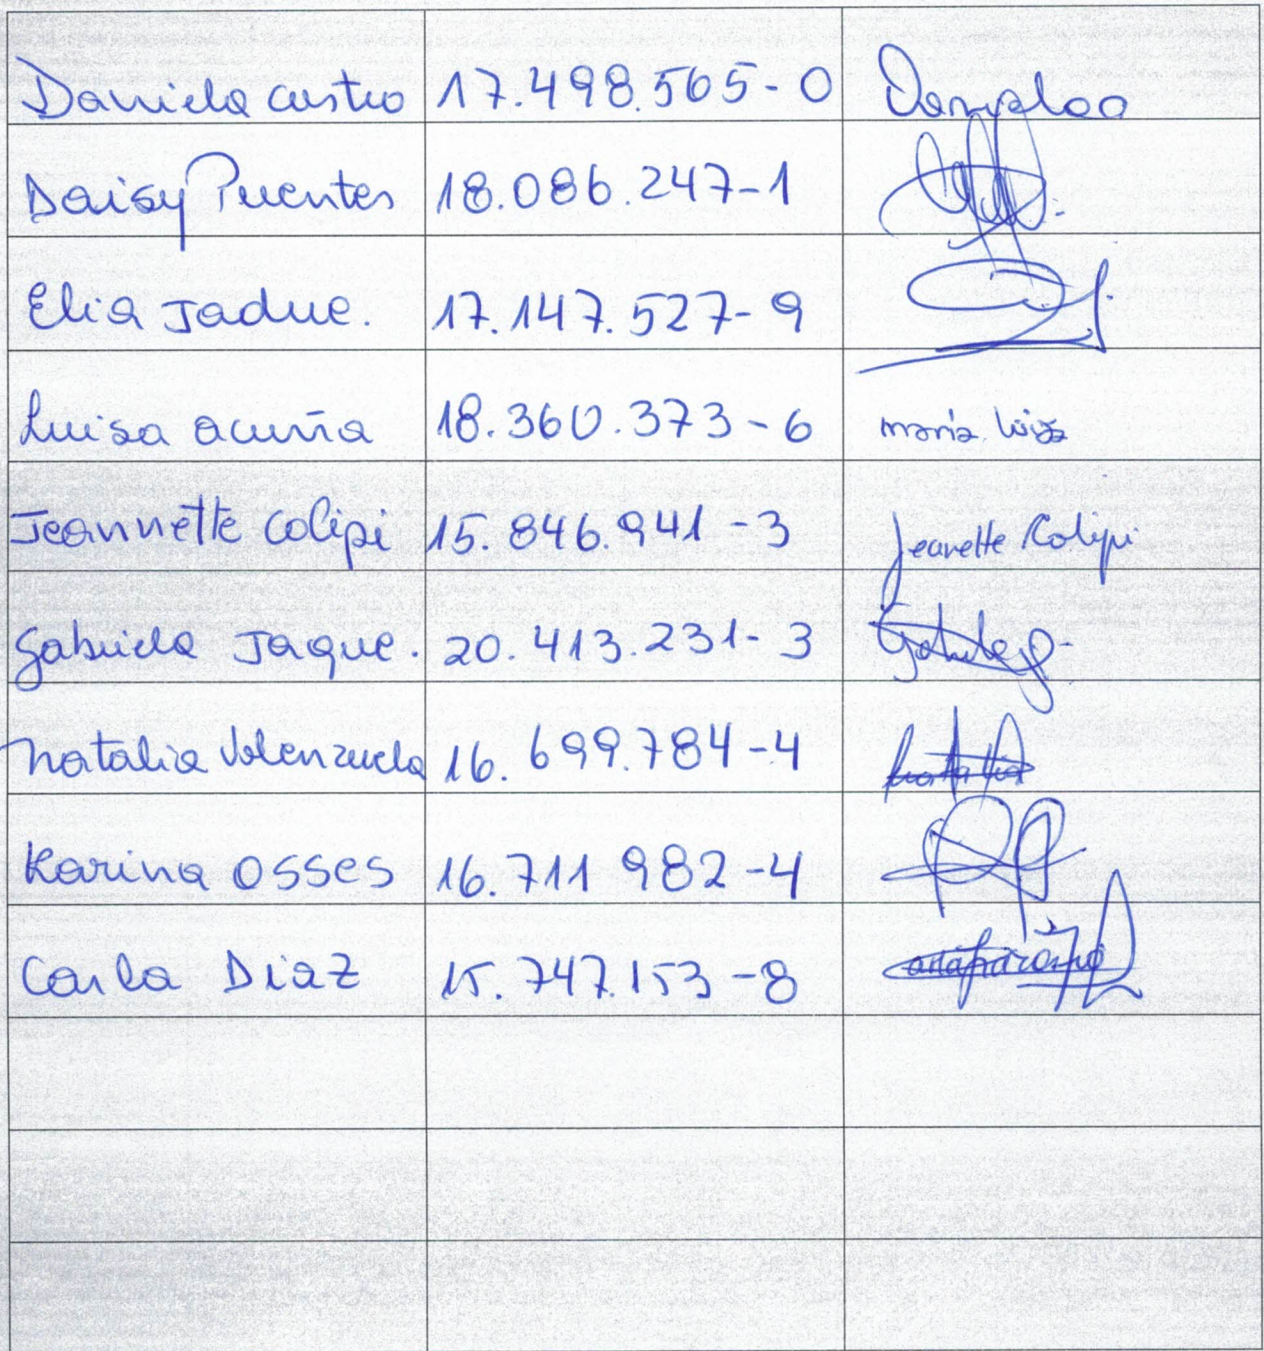 Daniela Castro 17.498.565-0
Daisy Puentes 18.086.247-1
Elia Jadue. 17.147.527-9
Luisa acuña 18.360.373-6 maría luisa
Jeannette Colipi 15.846.941-3 Jeanette Colipi
Gabriela Jaque. 20.413.231-3
Natalia Valenzuela 16.699.784-4
Karina OSSES 16.711 982-4
Carla Diaz 15.747.153-8